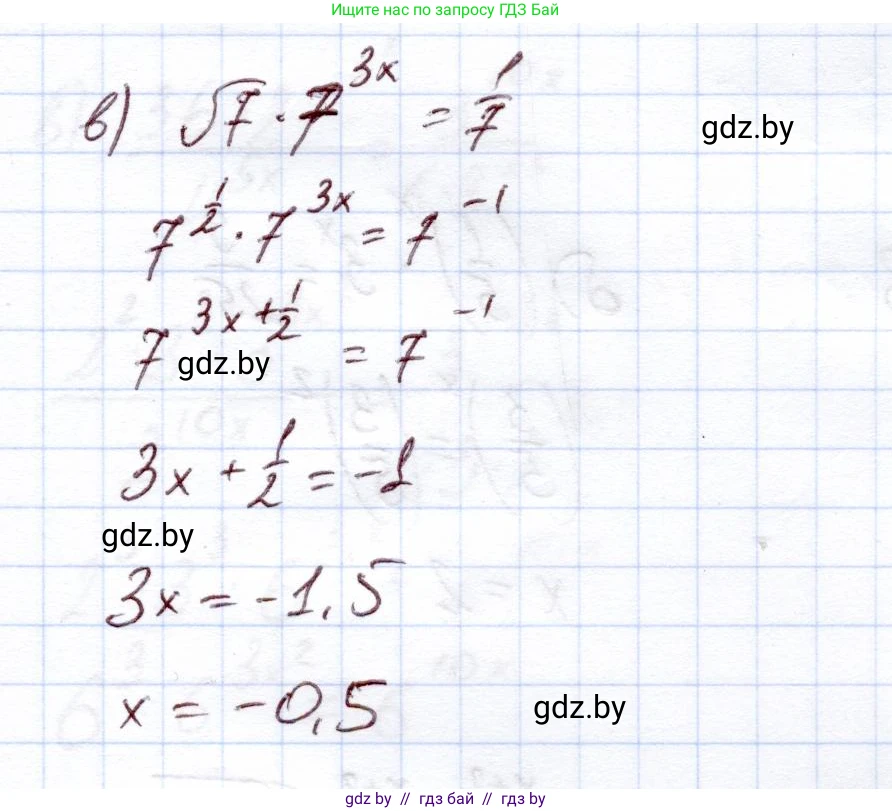 Ищите нас по запросу ГДЗ Бай
в) √7 · 7^{3x} = 1/7
gdz.by
7^{1/2} · 7^{3x} = 7^{-1}
7^{3x + 1/2} = 7^{-1}
gdz.by
3x + 1/2 = -1
gdz.by
3x = -1,5
x = -0,5
gdz.by
gdz.by // гдз бай // гдз by